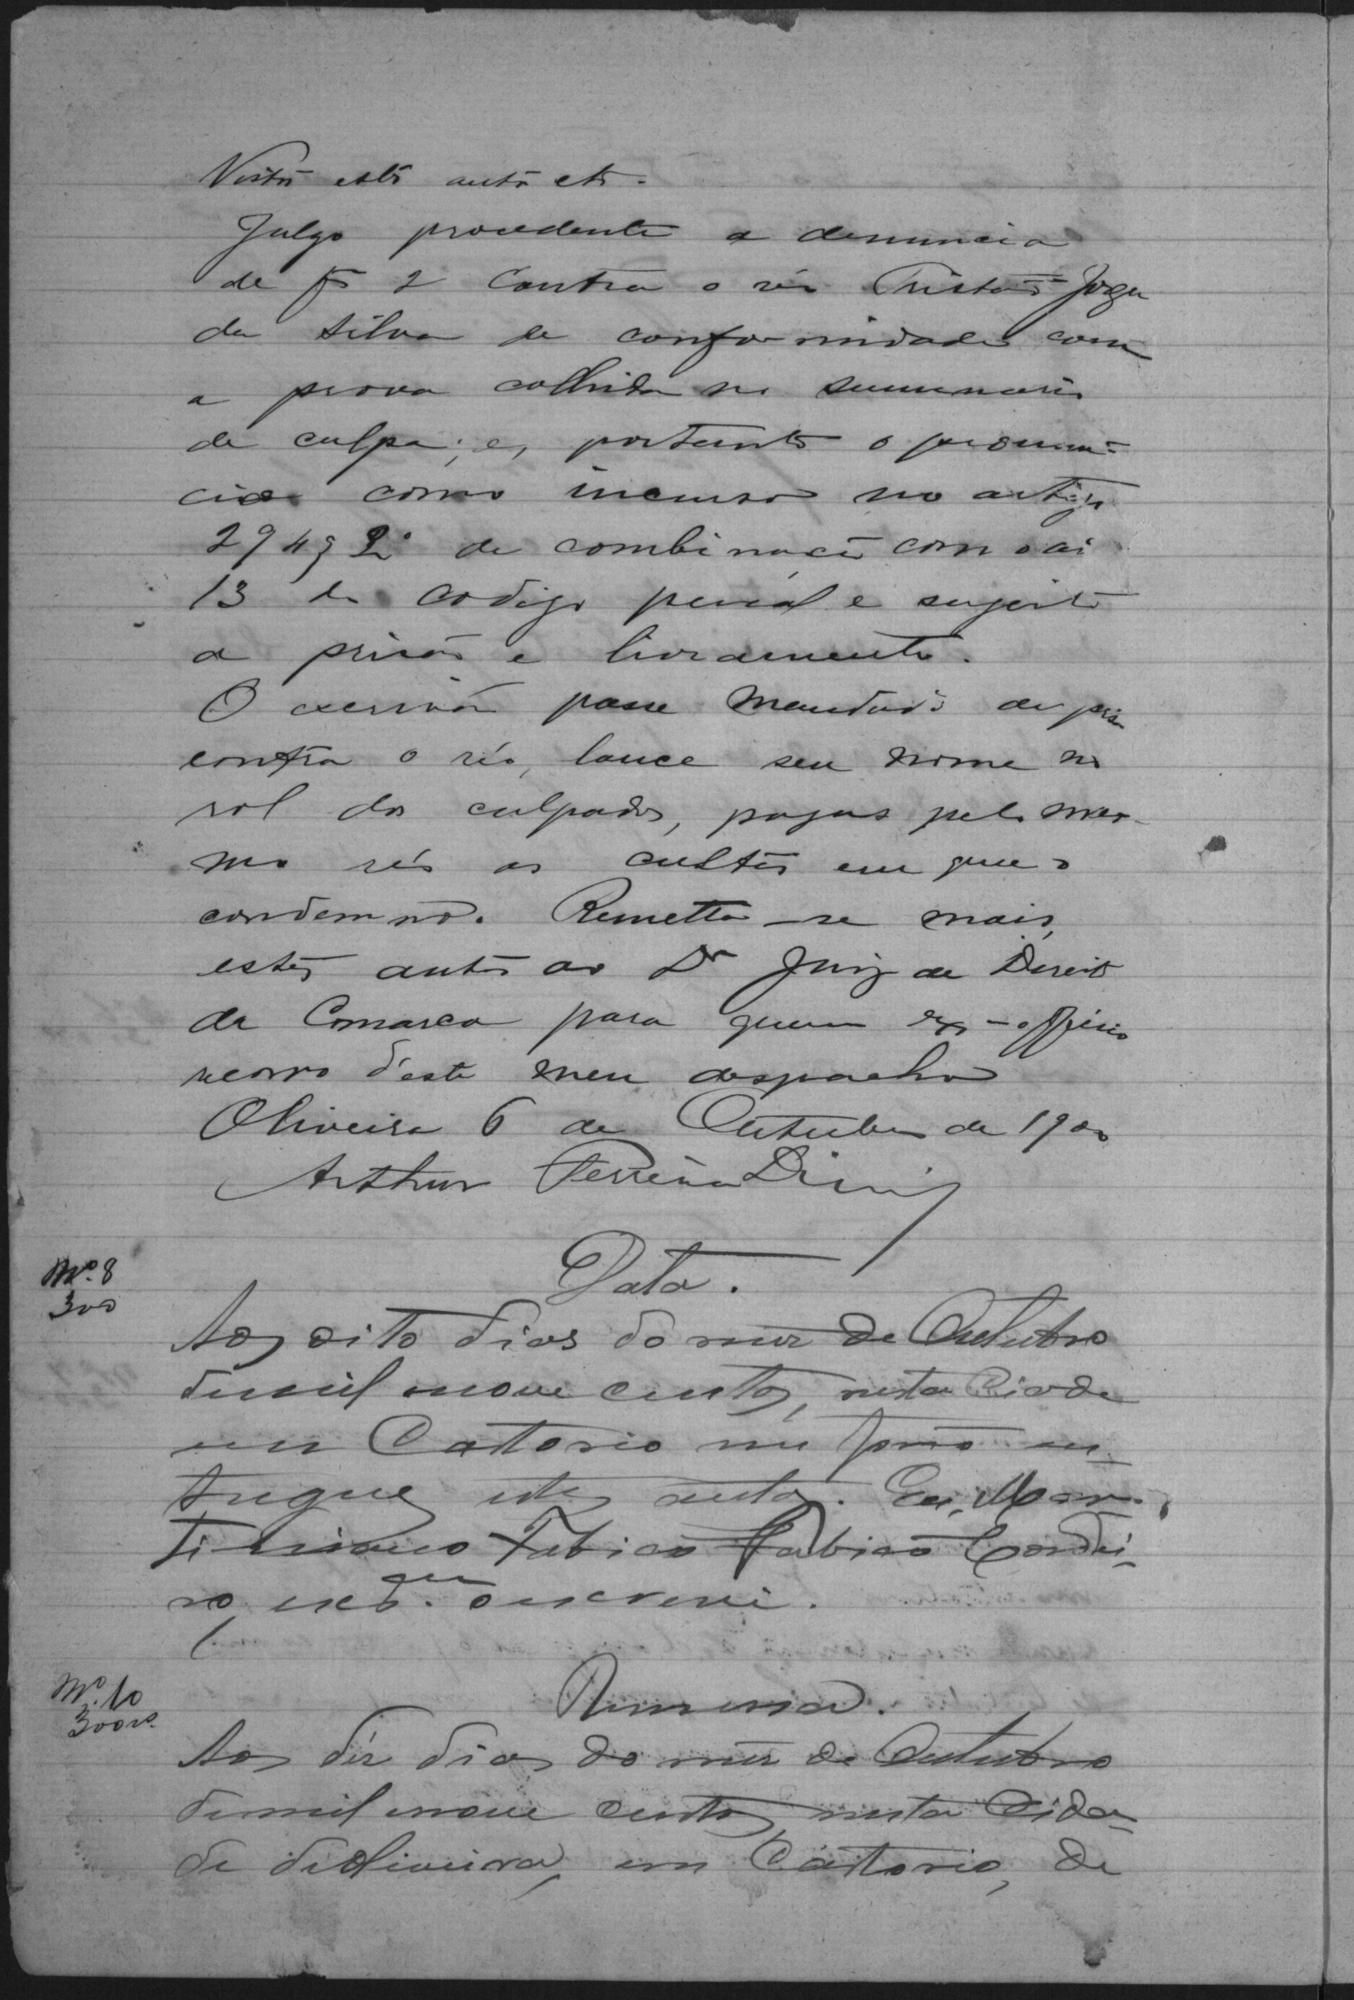 Vistos estes autos etc.
Julgo procedente a denuncia
de fs 2 contra o réo Tristão José
da Silva de conformidade com
a prova colhida no summario
de culpa; e, portanto o pronun-
cio como incurso no artigo
294 § 2º de combinação com o ar
13 do codigo penal e sugeito
a prisão e livramento.
O escrivão passe mandado de pris
contra o réo, lance seu nome no
rol dos culpados, pagas pelo mes-
mo réo as custas em que o
condemno. Remetta-se mais,
estes autos ao Dr Juiz de Direito
da Comarca para quem ex-officio
recorro d'este meu despacho
Oliveira 6 de Outubro de 1900
Arthur Ferreira Diniz
Data.
Nº. 8
300
Aos oito dias do mez de Outubro
de mil nove centos, nesta Cidade
em Cartorio me forão en-
tregues estes autos. Eu, Mar-
tiniano Fabico Fabião Cordei-
ro, escº. que o escrevi.
Remessa.
Nº. 10
300 rs.
Aos dez dias do mez de Outubro
de mil nove centos, nesta Cida-
de de Oliveira, em Cartorio, de